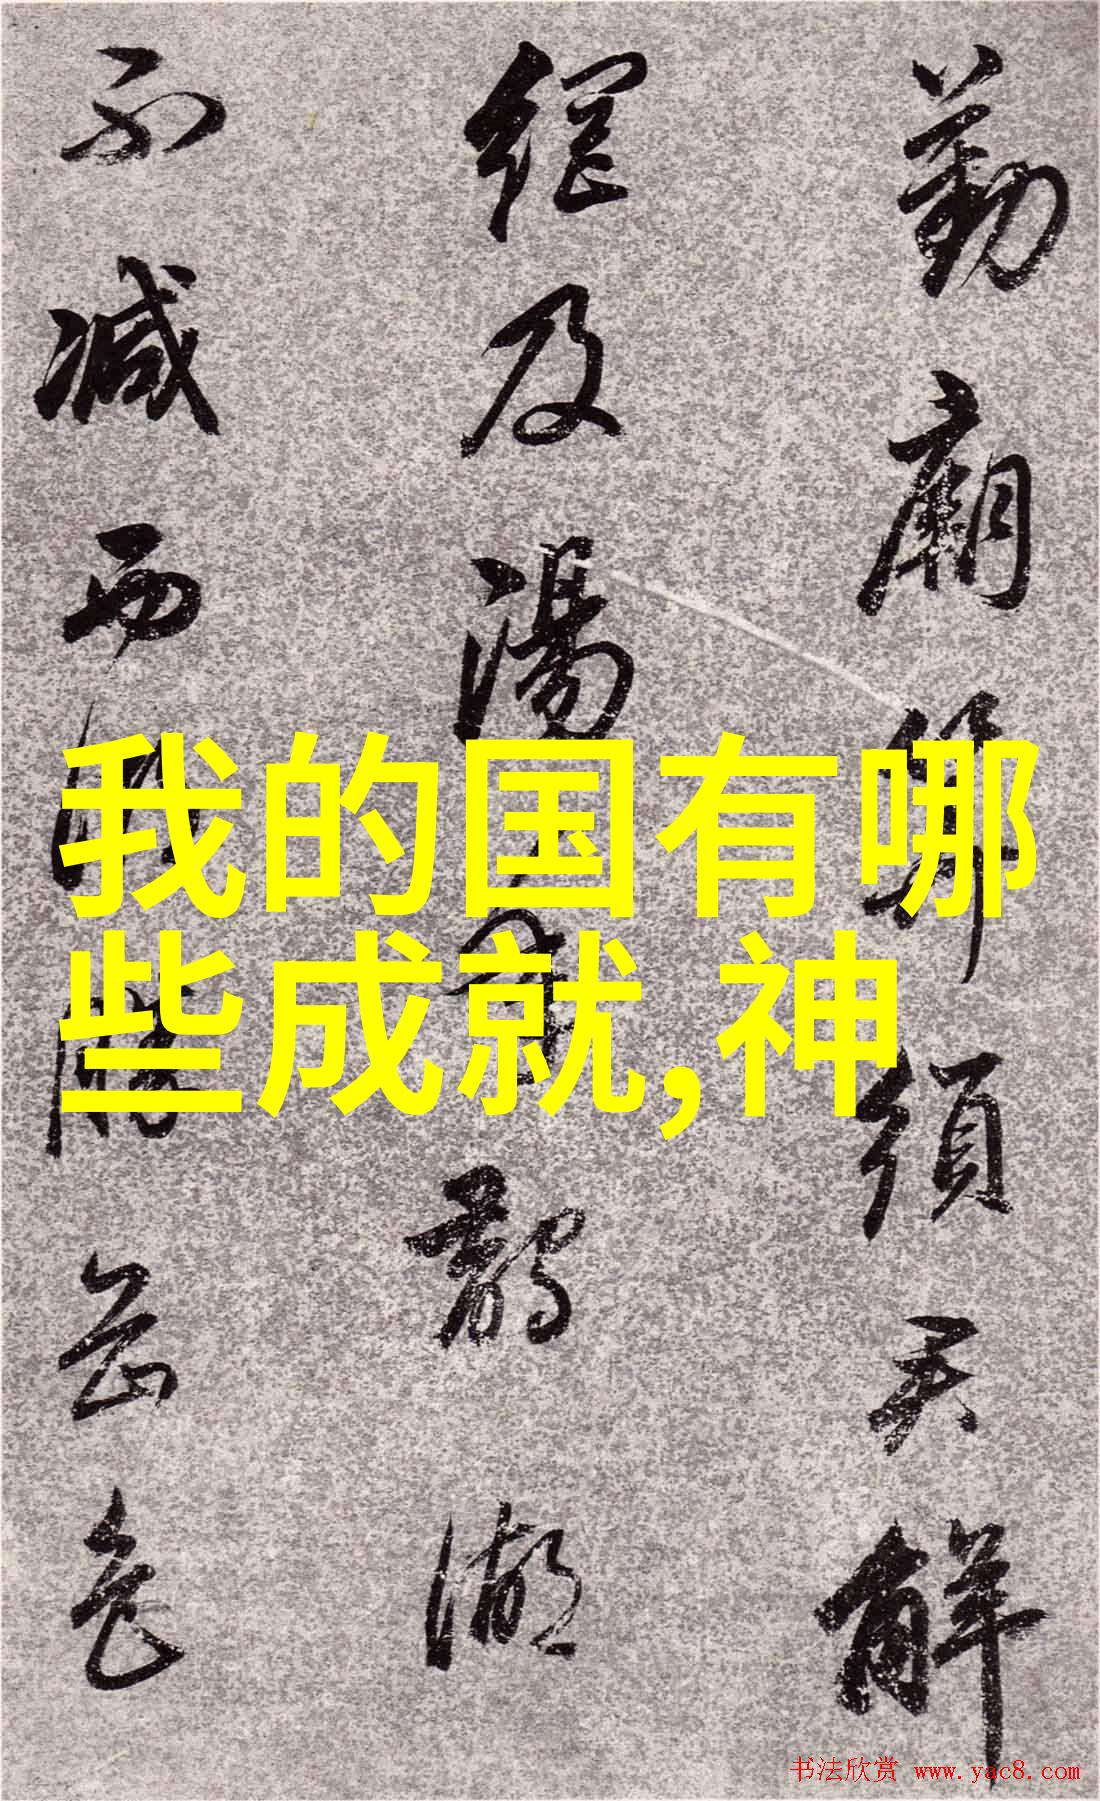 勤廟算須天解
網及湯
鵲湖
不減西
岳色
我的国有哪
些成就,神
书法欣赏 www.yac8.com